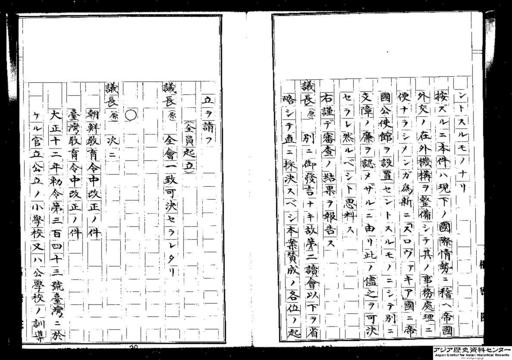 ントスルモノナリ
按ズルニ本件ハ現下ノ國際情勢ニ稽ヘ帝國
外交ノ在外機構ヲ整備シテ其ノ事務處理ニ
便ナラシメンガ爲新ニスロヴァキア國ニ帝
國公使館ヲ設置セントスルモノニシテ別ニ
支障ノ廉ヲ認メザルニ由リ此ノ儘之ヲ可決
セラレ然ルベシト思料ス
右謹デ審査ノ結果ヲ報告ス
議長(原) 別ニ御發言ナキ故第二讀會以下ヲ省
略シテ直ニ採決スベシ本案賛成ノ各位ノ起
立ヲ請フ
(全員起立)
議長(原) 全會一致可決セラレタリ
○
議長(原) 次ニ
朝鮮教育令中改正ノ件
臺灣教育令中改正ノ件
大正十二年勅令第三百四十三號臺灣ニ於
ケル官立公立ノ小學校又ハ公學校ノ訓導
アジア歴史資料センター
Japan Center for Asian Historical Records